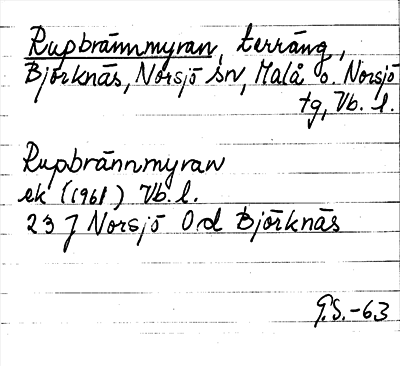 Rupbrännmyran, terräng,
Björknäs, Norsjö sn, Malå o. Norsjö
tg, Vb. l.
Rupbrännmyran
ek (1961) Vb. l.
23 J Norsjö 0d Björknäs
G.S.-63